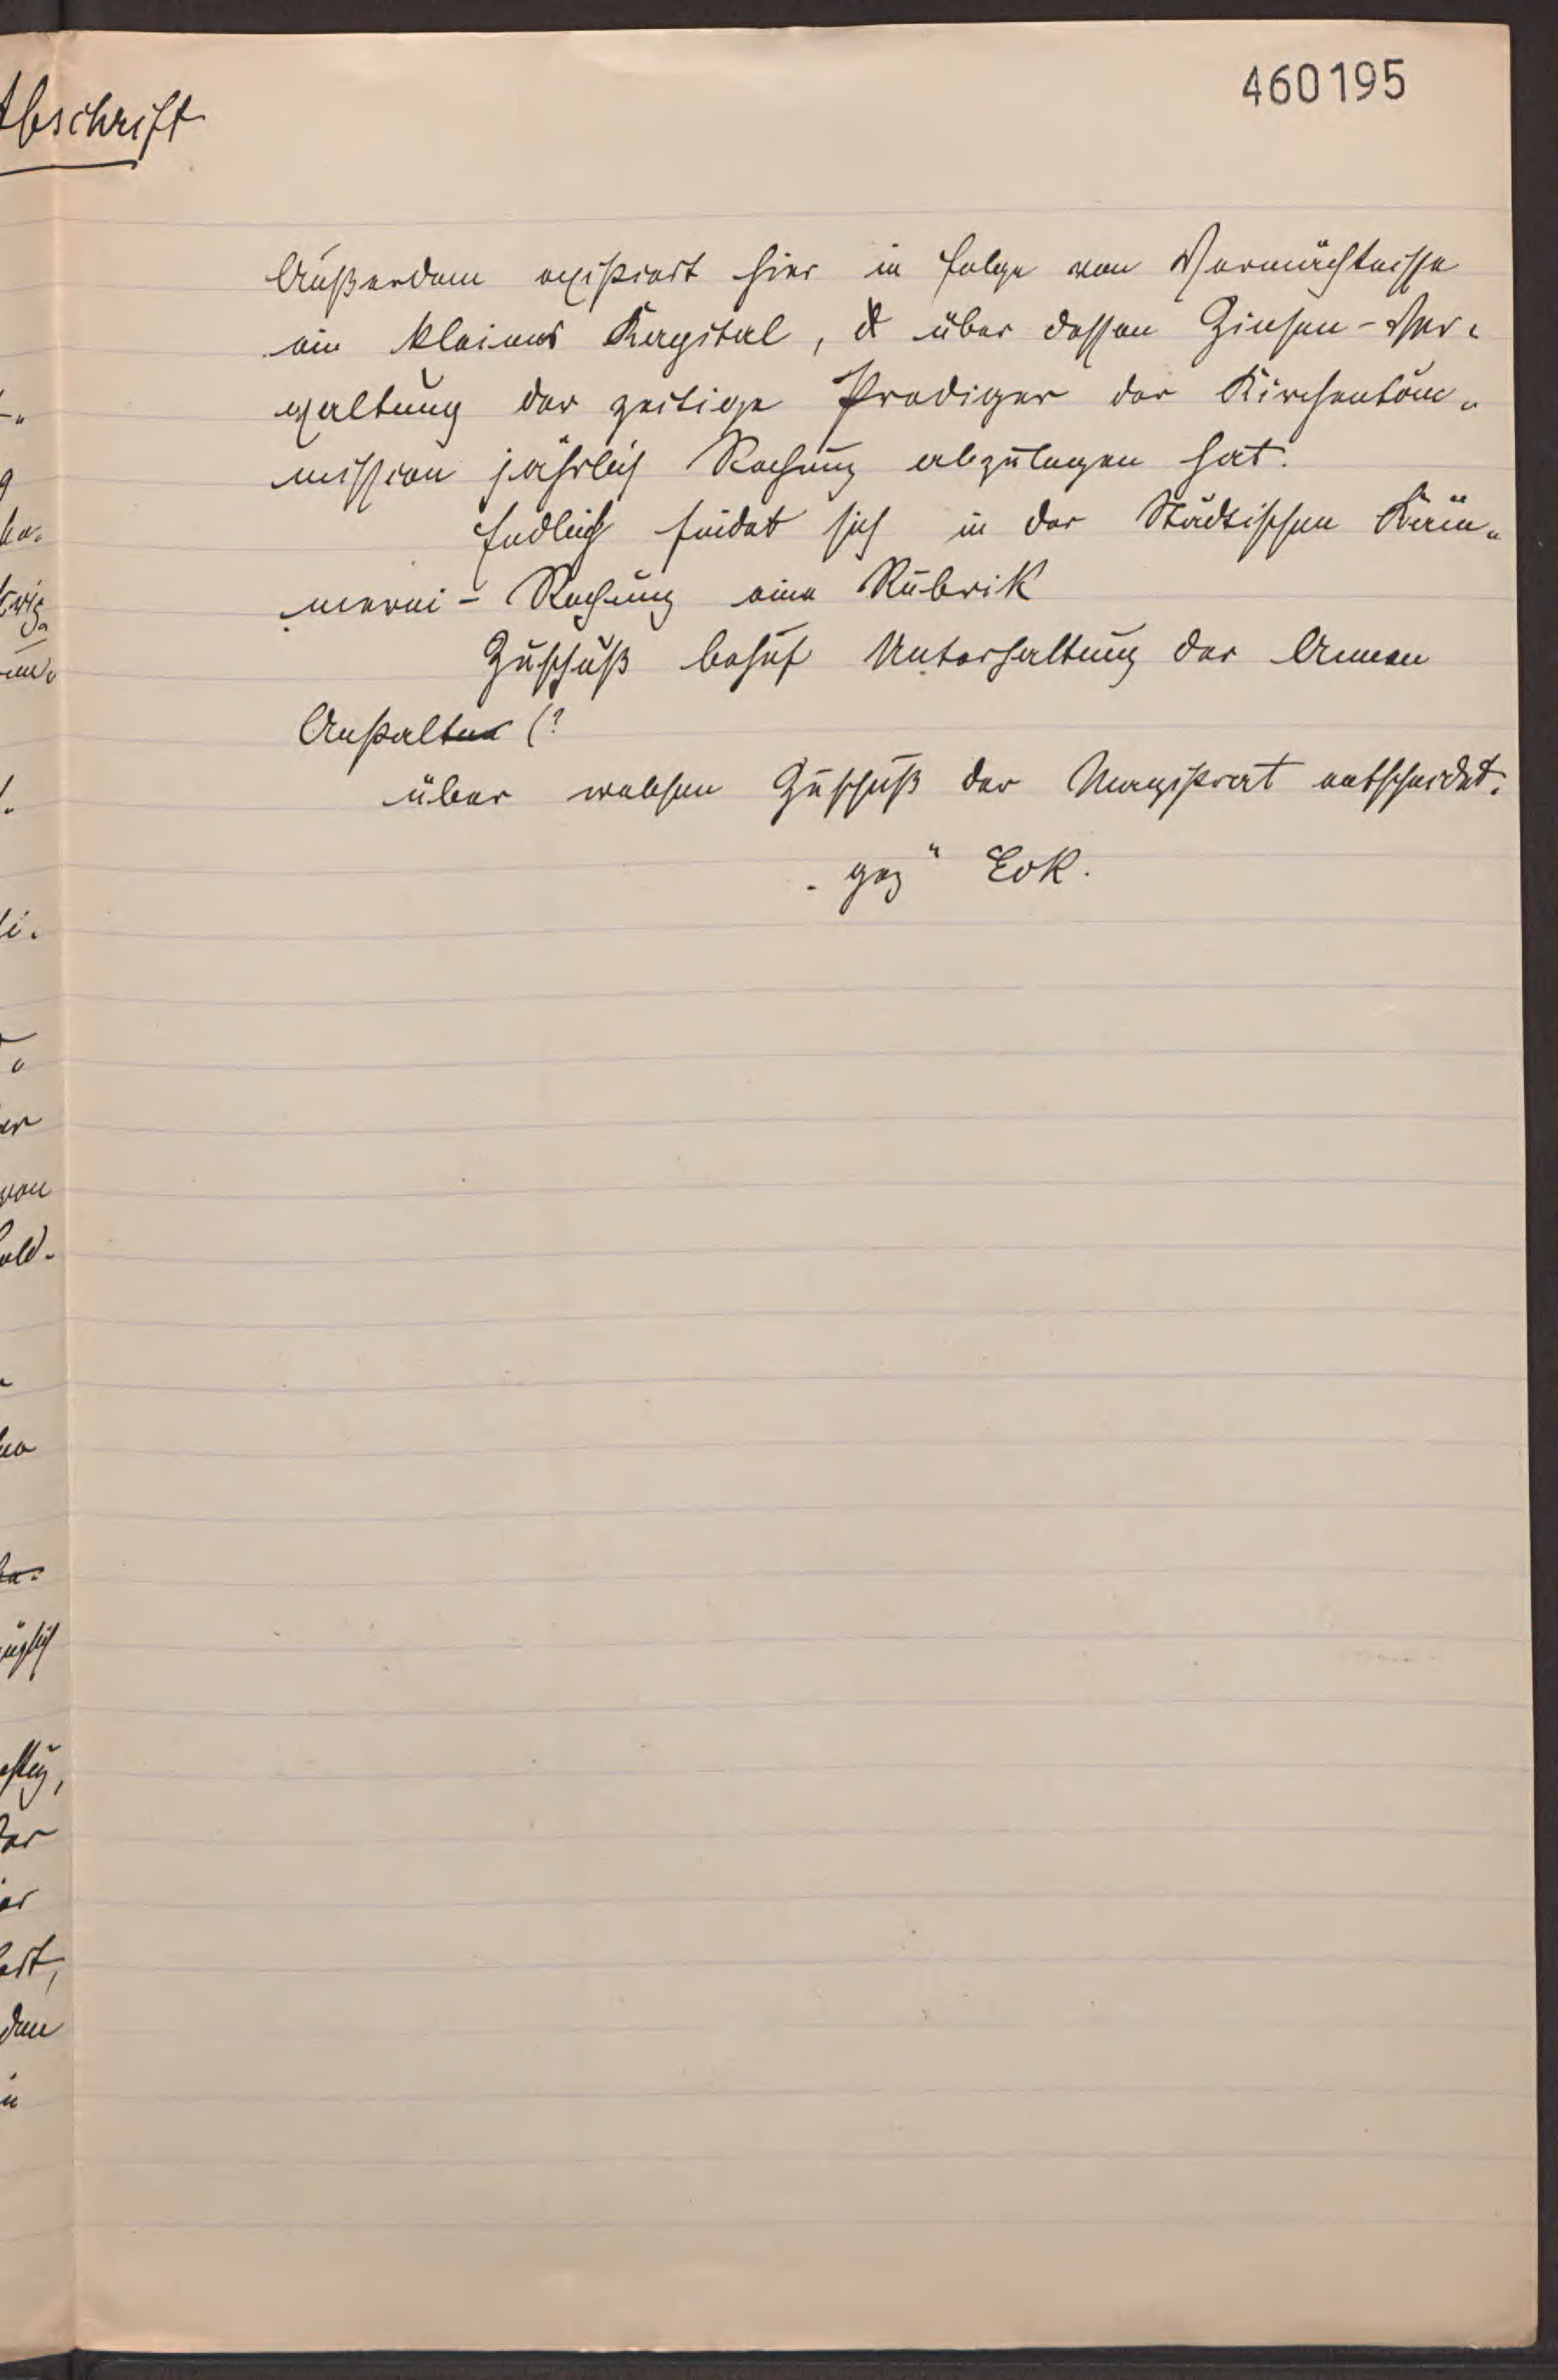 460195
Abschrift
Außerdem existiert hier in folge von Vermächtnisse
ein kleines Kapital, über dessen Zinsen-Ver-
waltung der zeitige Prediger der Kirchenkom-
mission jährlich Rechnung abzulegen hat.
Endlich findet sich in der Städtischen Käm-
merei-Rechnung eine Rubrik
Zuschuß behuf Unterhaltung der Armen
Anstalten (?
über welchen Zuschuß der Magistrat entscheidet.
"gez" Eck.